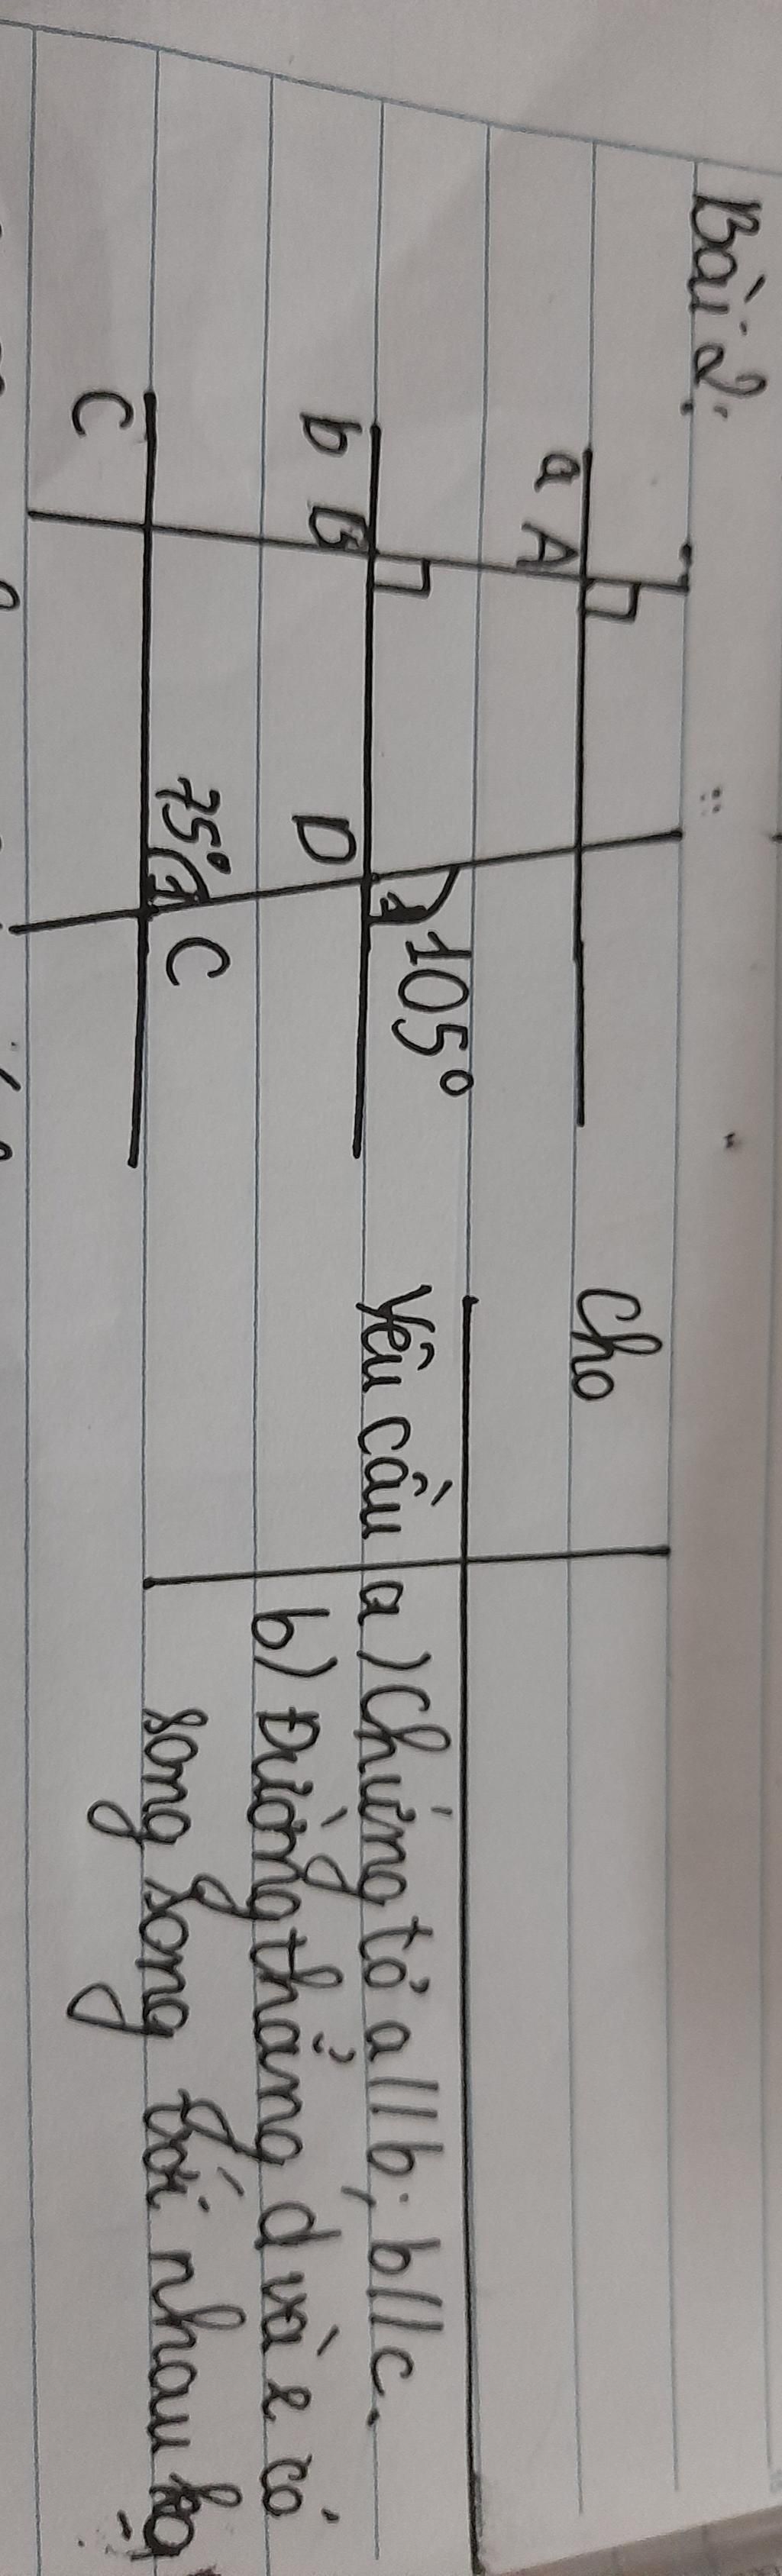 Bài 2:
Cho
a A
105°
b B D 1
Yêu cầu a) Chứng tỏ a // b; b // c.
b) Đường thẳng d và e có
75° 1 C
song song với nhau ko
C